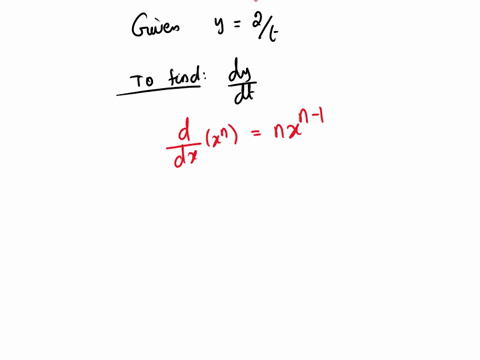 Given y = 2/t
To find: dy/dt
d/dx (xⁿ) = nxⁿ⁻¹